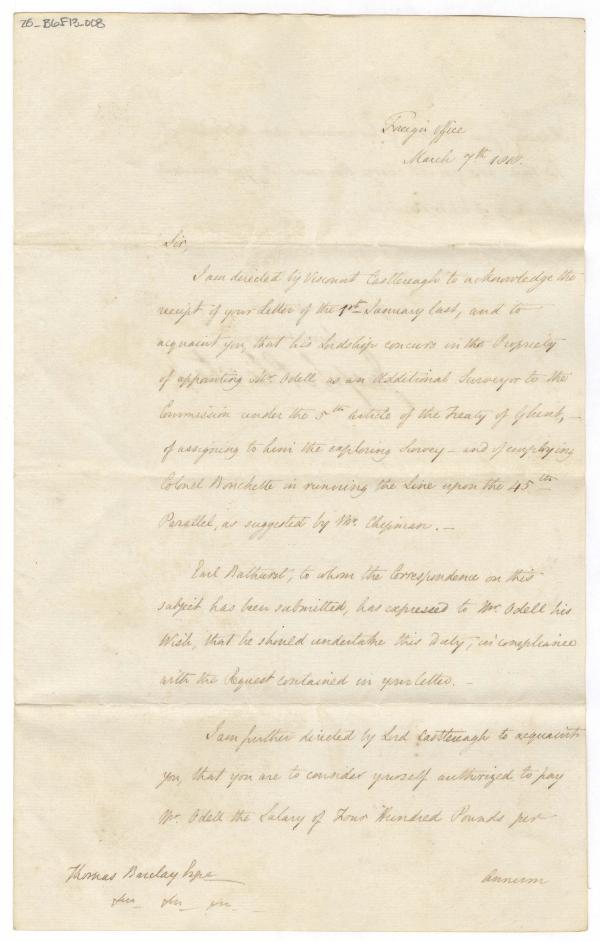 26_B6F13_008
Foreign Office
March 7th 1818.
Sir,
I am directed by Viscount Castlereagh to acknowledge the
receipt of your Letter of the 1st January last, and to
acquaint you, that his Lordship concurs in the Propriety
of appointing Mr. Odell, as an Additional Surveyor to the
Commission under the 5th article of the Treaty of Ghent, –
of assigning to him the exploring Survey – and of employing
Colonel Bouchette in running the Line upon the 45th
Parallel, as suggested by Mr. Chipman. –
Earl Bathurst, to whom the Correspondence on this
subject has been submitted, has expressed to Mr. Odell his
Wish, that he should undertake this Duty, in compliance
with the Request contained in your letter. –
I am further directed by Lord Castlereagh to acquaint
you, that you are to consider yourself authorized to pay
Mr. Odell the Salary of Four Hundred Pounds per
Annum
Thomas Barclay Esqre